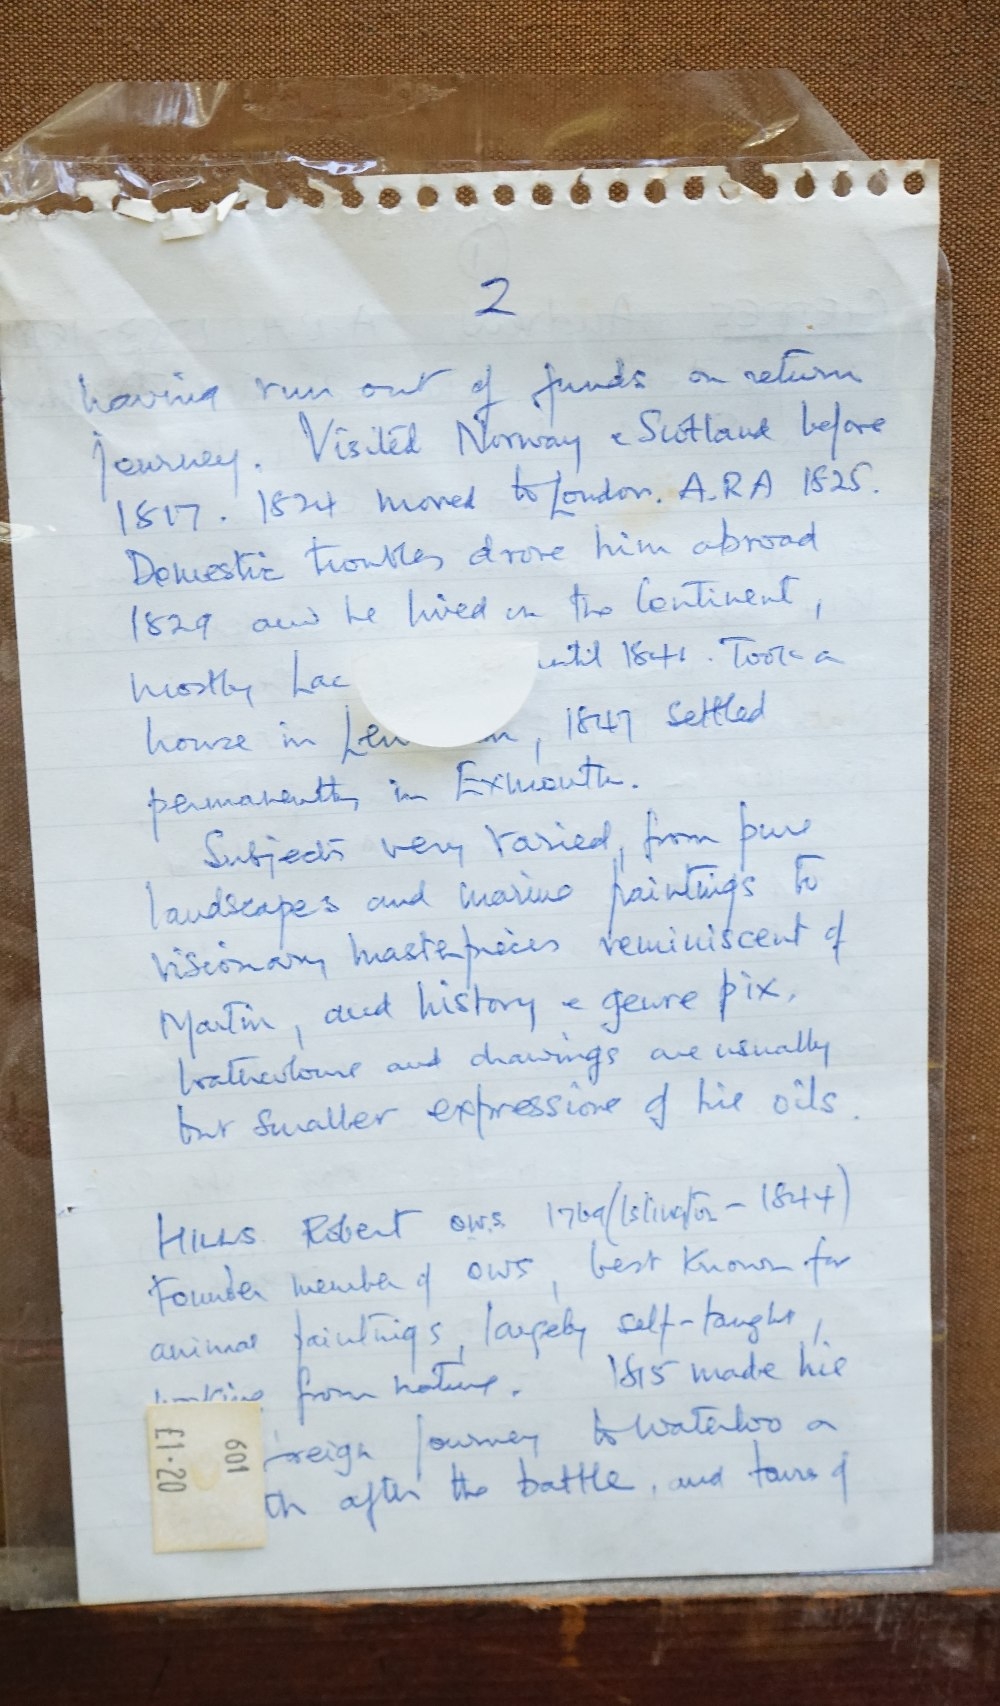 2
having run out of funds on return
journey. Visited Norway & Scotland before
1817. 1824 moved to London. A.R.A 1825.
Domestic troubles drove him abroad
1829 and he lived on the Continent,
mostly Lac until 1841. Took a
house in , 1847 settled
permanently in Exmouth.
Subjects very varied, from pure
landscapes and marine paintings to
visionary masterpieces reminiscent of
Martin, and history & genre pix.
Watercolours and drawings are usually
but smaller expressions of his oils.
HILLS Robert OWS 1769 (Islington - 1844)
Founder member of OWS, best known for
animal paintings, largely self-taught,
working from nature. 1815 made his
reign journey to Waterloo a
th after the battle, and tours of
601
£1·20